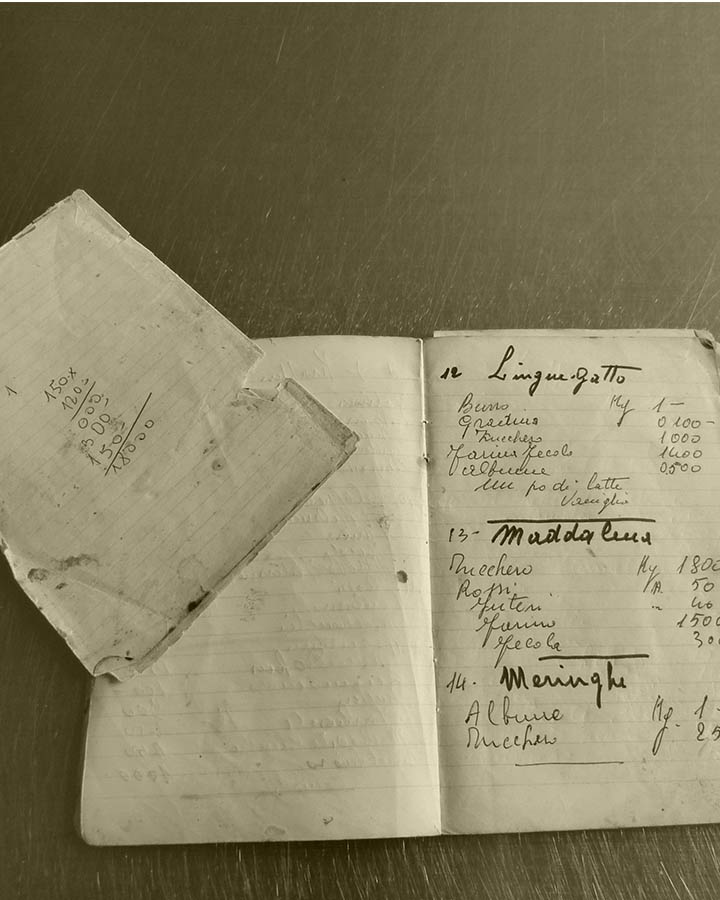 1
150 x
120
000
300
150
18000
12 Lingue-Gatto
Burro Kg 1-
Gradina 0100-
Zucchero 1000
Farina fecola 1400
Albume 0500
Un po di latte
Vaniglia
13- Maddalena
Zucchero Kg 1800
Rossi N. 50
Interi " 40
Farina 1500
Fecola 300
14. Meringhe
Albume Kg. 1-
Zucchero g 25